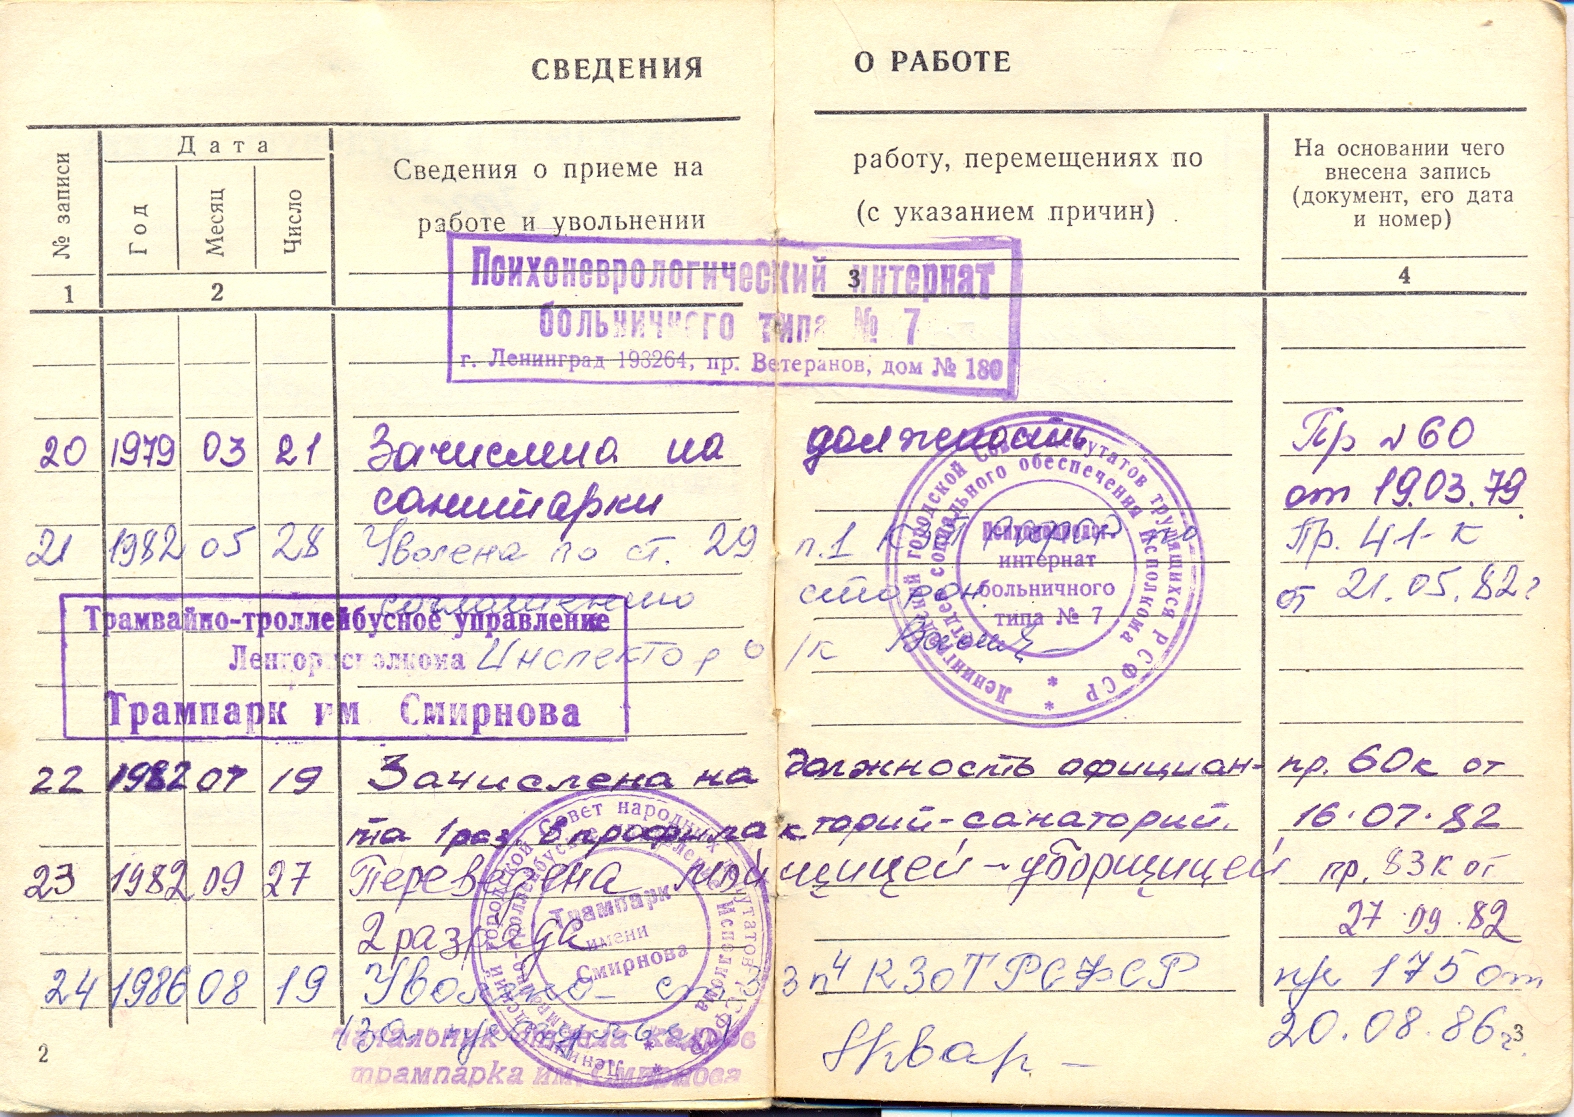 СВЕДЕНИЯ О РАБОТЕ
№ записи
Дата
Год
Месяц
Число
Сведения о приеме на работу, перемещениях по
работе и увольнении (с указанием причин)
На основании чего
внесена запись
(документ, его дата
и номер)
1 2 3 4
Психоневрологический интернат
больничного типа № 7
г. Ленинград 193264, пр. Ветеранов, дом № 180
20 1979 03 21 Зачислена на должность Пр №60
санитарки от 19.03.79
21 1982 05 28 Уволена по ст. 29 п.1 КЗоТ РСФСР по Пр. 41-к
соглашению сторон. от 21.05.82г
Инспектор о/к
Ленинградский городской Совет депутатов трудящихся РСФСР
отдел социального обеспечения Исполкома
Психоневролог.
интернат
больничного
типа № 7
Трамвайно-троллейбусное управление
Ленгорисполкома
Трампарк им Смирнова
22 1982 07 19 Зачислена на должность официан- пр. 60к от
та 1 раз. в профилакторий-санаторий. 16.07.82
23 1982 09 27 Переведена мойщицей-уборщицей пр. 83к от
2 разряда 27 09.82
24 1986 08 19 п4 КЗоТ РСФСР пр 175 от
20.08.86г.
Ленинградский городской Совет народных депутатов РСФСР
Трампарк
имени
Смирнова
Начальник отдела кадров
трампарка им. Смирнова
2 3